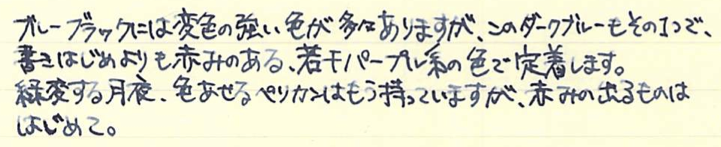 ブルーブラックには変色の強い色が多々ありますが、このダークブルーもその1つで、
書きはじめよりも赤みのある、若干パープル系の色で定着します。
緑変する月夜、色あせるペリカンはもう持っていますが、赤みの出るものは
はじめて。